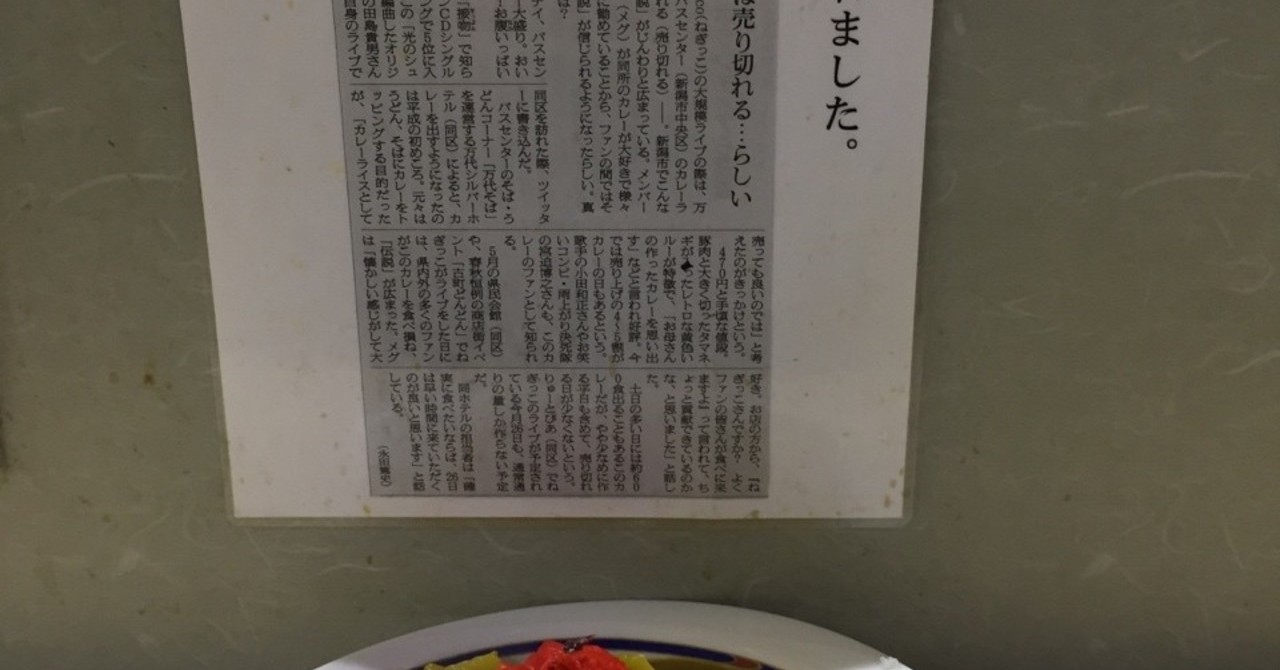 ました。
は売り切れる…らしい
(ねぎっこ)の大規模ライブの際は、万
バスセンター(新潟市中央区)のカレーラ
れる(売り切れる)――。新潟市でこんな
説」がじんわりと広まっている。メンバー
(メグ)が同所のカレーが大好きで様々
に勧めていることから、ファンの間ではそ
説」が信じられるようになったらしい。真
は?
ナイ、バスセン
ー大盛り。おい
ーお腹いっぱい
「接吻」で知ら
CDシングル
ングで5位に入
この「光のシュ
編曲したオリジ
の田島貴男さん
自身のライブで
同区を訪れた際、ツイッタ
ーに書き込んだ。
バスセンターのそば・う
どんコーナー「万代そば」
を運営する万代シルバーホ
テル(同区)によると、カ
レーを出すようになったの
は平成の初めごろ。元々は
うどん、そばにカレーをト
ッピングする目的だった
が、「カレーライスとして
売っても良いのでは」と考
えたのがきっかけという。
470円と手頃な値段、
豚肉と大きく切ったタマネ
ギが ったレトロな黄色い
ルーが特徴で、「お母さん
の作ったカレーを思い出
す」などと言われ好評。今
では売り上げの4〜5割が
カレーの日もあるという。
歌手の小田和正さんやお笑
いコンビ・雨上がり決死隊
の宮迫博之さんも、このカ
レーのファンとして知られ
る。
5月の県民会館(同区)
や、春秋恒例の商店街イベ
ント「古町どんどん」でね
ぎっこがライブをした日に
は、県内外の多くのファン
がこのカレーを食べ損ね、
「伝説」が広まった。メグ
は「懐かしい感じがして大
好き。お店の方から、『ね
ぎっこさんですか? よく
ファンの皆さんが食べに来
ますよ』って言われて、ち
ょっと貢献できているのか
な、と思いました」と話し
た。
土日の多い日には約60
0食出ることもあるこのカ
レーだが、やや少なめに作
る平日も含めて、売り切れ
る日が少なくないという。
りゅーとぴあ(同区)でね
ぎっこのライブが予定され
ている今月26日も、通常通
りの量しか作らない予定
だ。
同ホテルの担当者は「確
実に食べたいならば、26日
は早い時間に来ていただく
のが良いと思います」と話
している。